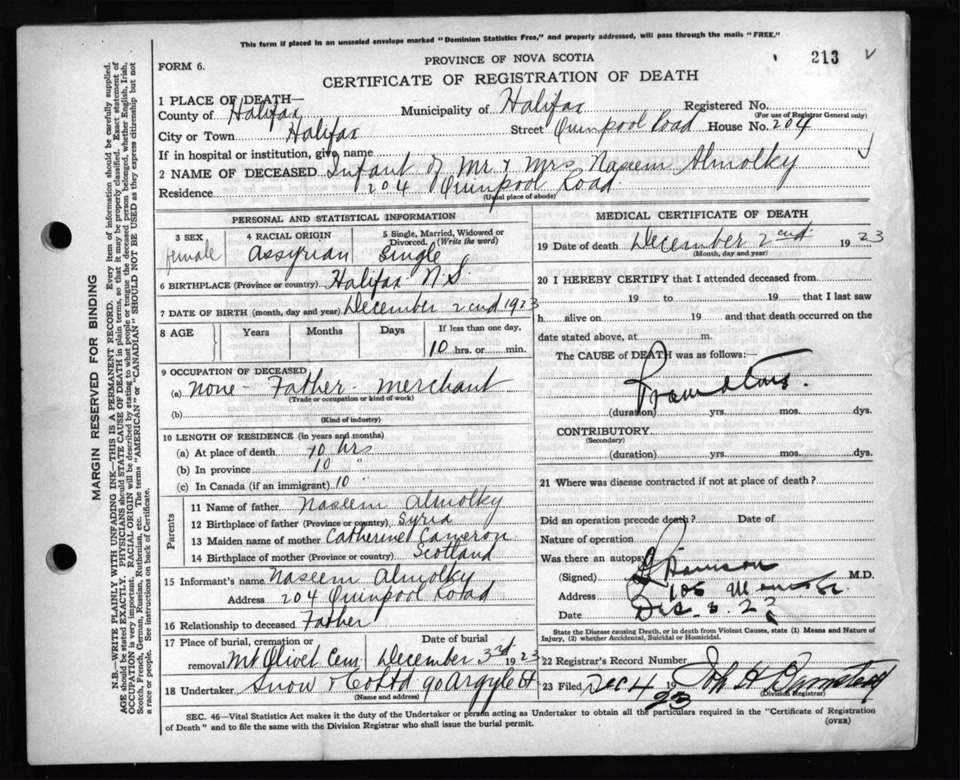 This form if placed in an unsealed envelope marked "Dominion Statistics Free," and properly addressed, will pass through the mails "FREE."
213 V
FORM 6.
PROVINCE OF NOVA SCOTIA
CERTIFICATE OF REGISTRATION OF DEATH
1 PLACE OF DEATH—
County of Halifax Municipality of Halifax Registered No.
(For use of Registrar General only)
City or Town Halifax Street Quinpool Road House No. 204
If in hospital or institution, give name
2 NAME OF DECEASED Infant of Mr & Mrs Naseem Almolky
Residence 204 Quinpool Road
(Usual place of abode)
PERSONAL AND STATISTICAL INFORMATION
3 SEX 4 RACIAL ORIGIN 5 Single, Married, Widowed or Divorced. (Write the word)
female Assyrian Single
6 BIRTHPLACE (Province or country) Halifax N.S.
7 DATE OF BIRTH (month, day and year) December 2nd 1923
8 AGE Years Months Days If less than one day,
10 hrs. or min.
9 OCCUPATION OF DECEASED
(a) none - Father - merchant
(Trade or occupation or kind of work)
(b)
(Kind of industry)
10 LENGTH OF RESIDENCE (in years and months)
(a) At place of death 10 hrs
(b) In province 10 "
(c) In Canada (if an immigrant) 10 "
Parents
11 Name of father Naseem Almolky
12 Birthplace of father (Province or country) Syria
13 Maiden name of mother Catherine Cameron
14 Birthplace of mother (Province or country) Scotland
15 Informant's name Naseem Almolky
Address 204 Quinpool Road
16 Relationship to deceased Father
17 Place of burial, cremation or removal Mt Olivet Cem Date of burial December 3rd 1923
18 Undertaker Snow & Co Ltd 90 Argyle St
(Name and address)
MEDICAL CERTIFICATE OF DEATH
19 Date of death December 2nd 1923
(Month, day and year)
20 I HEREBY CERTIFY that I attended deceased from
19 to 19 , that I last saw
h alive on 19 and that death occurred on the
date stated above, at m.
The CAUSE of DEATH was as follows:—
(duration) yrs. mos. dys.
CONTRIBUTORY
(Secondary)
(duration) yrs. mos. dys.
21 Where was disease contracted if not at place of death?
Did an operation precede death? Date of
Nature of operation
Was there an autopsy
(Signed) M.D.
Address 105
Date Dec. 3. 23
State the Disease causing Death, or in death from Violent Causes, state (1) Means and Nature of Injury, (2) whether Accidental, Suicidal or Homicidal.
22 Registrar's Record Number
23 Filed Dec 4 19 23 Jno H Barnstead
Division Registrar
SEC. 46—Vital Statistics Act makes it the duty of the Undertaker or person acting as Undertaker to obtain all the particulars required in the "Certificate of Registration
of Death" and to file the same with the Division Registrar who shall issue the burial permit.
(OVER)
MARGIN RESERVED FOR BINDING
N.B.—WRITE PLAINLY WITH UNFADING INK—THIS IS A PERMANENT RECORD. Every item of information should be carefully supplied.
AGE should be stated EXACTLY. PHYSICIANS should STATE CAUSE OF DEATH in plain terms, so that it may be properly classified. Exact statement of
OCCUPATION is very important. RACIAL ORIGIN will be described by stating to what people or tongue the deceased person belonged, whether English, Irish,
Scotch, French, German, Russian, Ruthenian, etc. The terms "AMERICAN" or "CANADIAN" SHOULD NOT BE USED as they express citizenship but not
a race or people. See instructions on back of Certificate.